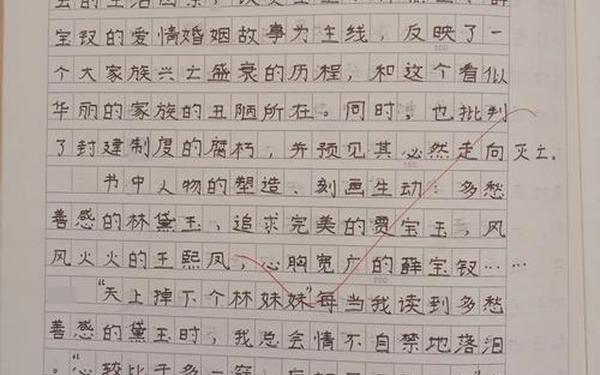 宝钗的爱情婚姻故事为主线，反映了一
个大家族兴亡盛衰的历程，和这个看似
华丽的家族的丑陋所在。同时，也批判
了封建制度的腐朽，并预见其必然走向灭亡.
书中人物的塑造、刻画生动：多愁
善感的林黛玉，追求完美的贾宝玉，风
风火火的王熙凤，心胸宽广的薛宝钗……
“天上掉下个林妹妹”每当我读到多愁
善感的黛玉时，我总会情不自禁地落泪
。“心较比干多一窍，